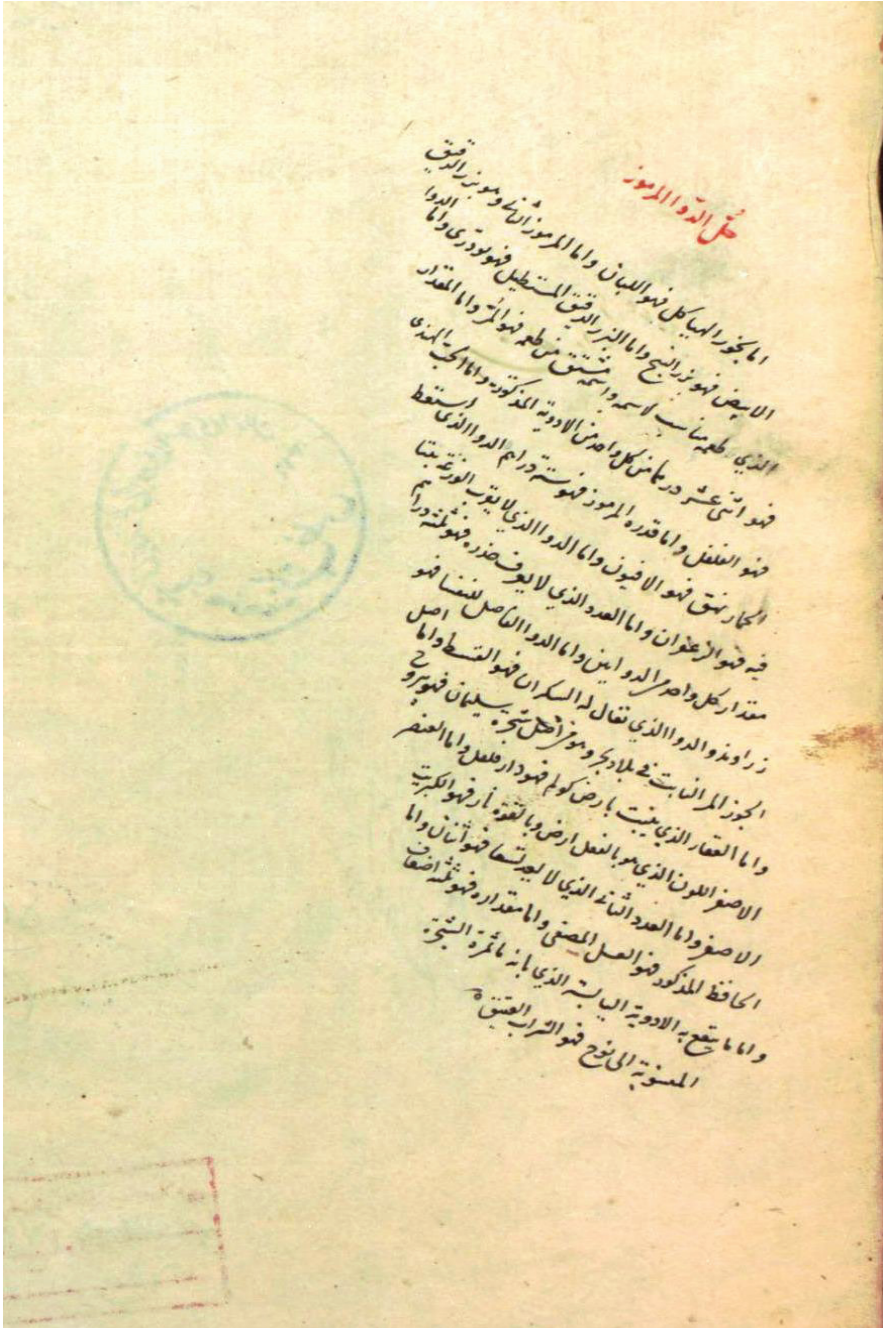 حل الدوا المرموز
اما بخور الهياكل فهو اللبان واما المرموز الثاني وهو بزر الدقيق
الابيض فهو بزر البنج واما البزر الدقيق المستطيل فهو تودري واما الدوا
الذي طعمه مناسب لاسمه واسمه مشتق من طعمه فهو المر واما المقدار
فهو اثنى عشر درهما من كل واحد من الادوية المذكورة واما الحب الهندي
فهو الفلفل واما قدره المرموز فهو ستة دراهم الدوا الذي استقط
الحمار نهق فهو الافيون واما الدوا الذي لا يقرب الوزغة بيتا
فيه فهو الزعفران واما العدد الذي لا يعرف جذره فهو ثلثة دراهم
مقدار كل واحد من الدوايين واما الدوا الفاضل للنفسا فهو
زراوند والدوا الذي تقال له السكران فهو القسط واما اصل
الجوز المر النابت في بلاد بجر وهو من اصل شجرة سليمان فهو يبروح
واما العقار الذي ينبت بارض كولم فهو دار فلفل واما العنصر
الاصفر اللون الذي هو بالفعل ارض وبالقوة نار فهو الكبريت
الاصفر واما العدد الثاني الذي لا يعد تسعا فهو اثنان واما
الحافظ المذكور فهو العسل المصفى واما مقداره فهو ثلثة اضعاف
واما ما ينقع به الادوية اليابسة الذي بانه ما ثمرة الشجرة
المنسوبة الى نوح فهو الشراب العتيق ه